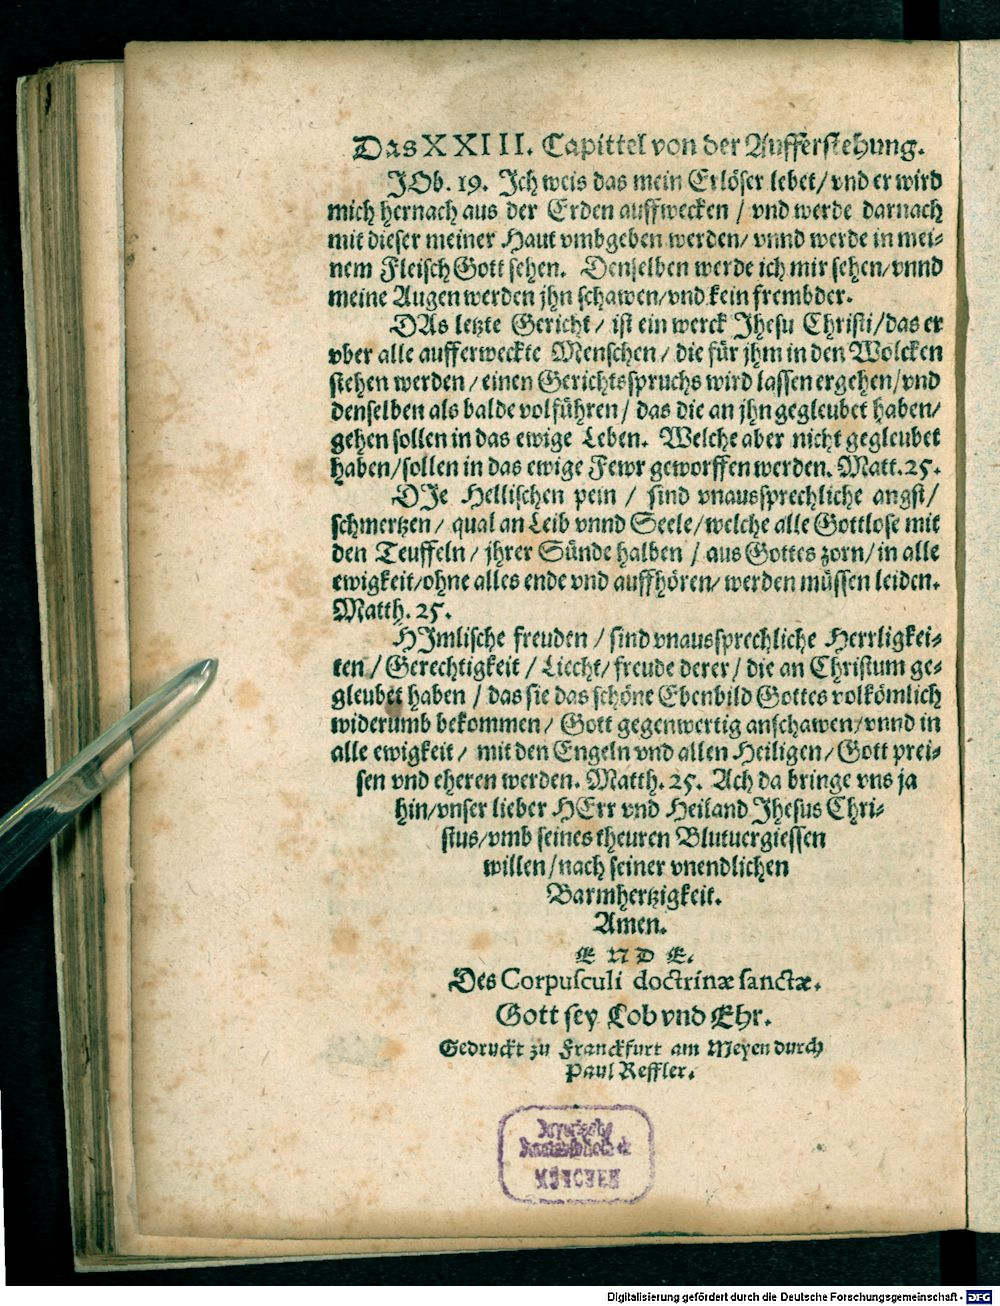 Das XXIII. Capittel von der Aufferstehung.
JOb. 19. Ich weis das mein Erlöser lebet/ vnd er wird
mich hernach aus der Erden auffwecken / vnd werde darnach
mit dieser meiner Haut vmbgeben werden/ vnnd werde in mei⸗
nem Fleisch Gott sehen. Denselben werde ich mir sehen/vnnd
meine Augen werden jhn schawen/vnd kein frembder.
DAs letzte Gericht / ist ein werck Jhesu Christi/das er
vber alle aufferweckte Menschen / die für jhm in den Wolcken
stehen werden / einen Gerichtsspruchs wird lassen ergehen/vnd
denselben als balde volführen / das die an jhn gegleubet haben/
gehen sollen in das ewige Leben. Welche aber nicht gegleubet
haben/sollen in das ewige Fewr geworffen werden. Matt. 25.
DIe Hellischen pein / sind vnaussprechliche angst/
schmertzen / qual an Leib vnnd Seele/welche alle Gottlose mit
den Teuffeln / jhrer Sünde halben / aus Gottes zorn/in alle
ewigkeit/ohne alles ende vnd auffhören/ werden müssen leiden.
Matth. 25.
HImlische freuden / sind vnaussprechliche Herrligkei⸗
ten / Gerechtigkeit / Liecht/freude derer / die an Christum ge⸗
gleubet haben / das sie das schöne Ebenbild Gottes volkömlich
widerumb bekommen / Gott gegenwertig anschawen/vnnd in
alle ewigkeit / mit den Engeln vnd allen Heiligen/Gott prei⸗
sen vnd eheren werden. Matth. 25. Ach da bringe vns ja
hin/vnser lieber HErr vnd Heiland Jhesus Chri⸗
stus/vmb seines theuren Blutuergiessen
willen/nach seiner vnendlichen
Barmhertzigkeit.
Amen.
E N D E.
Des Corpusculi doctrinæ sanctæ.
Gott sey Lob vnd Ehr.
Gedruckt zu Franckfurt am Meyen durch
Paul Reffler.
Bayerische
Staatsbibliothek
MÜNCHEN
Digitalisierung gefördert durch die Deutsche Forschungsgemeinschaft - DFG